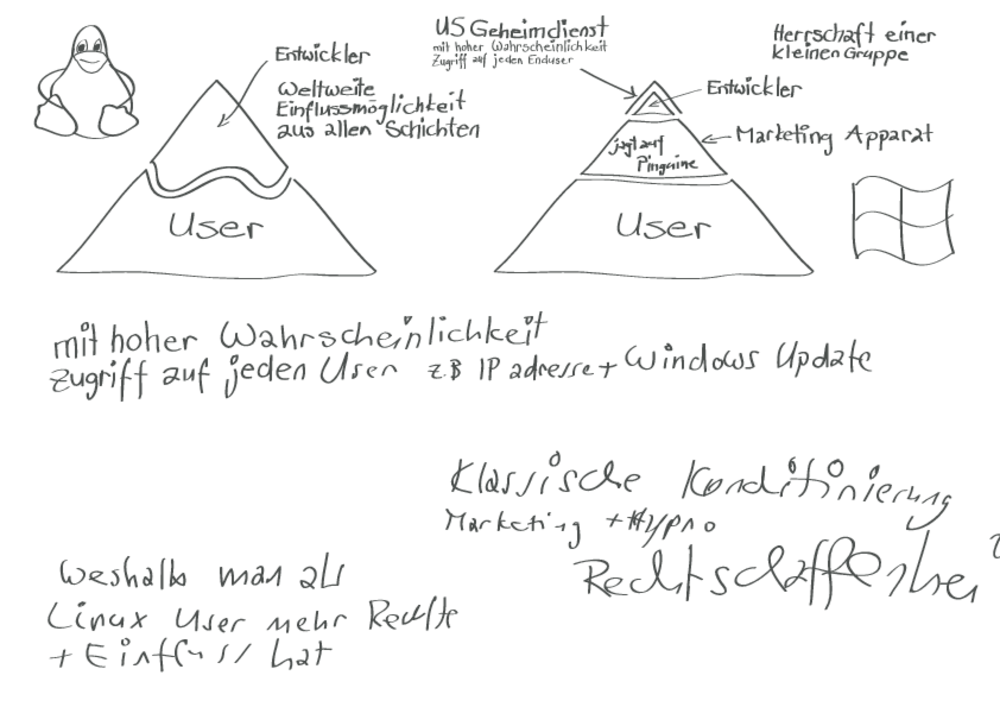 Entwickler
Weltweite
Einflussmöglichkeit
aus allen Schichten
User
US Geheimdienst
mit hoher Wahrscheinlichkeit
Zugriff auf jeden Enduser
Herrschaft einer
kleinen Gruppe
Entwickler
Marketing Apparat
jagt auf
Pinguine
User
mit hoher Wahrscheinlichkeit
Zugriff auf jeden User z.B IP adresse + Windows Update
Klassische Konditinierung
Marketing + Hypno
Weshalb man als
Linux User mehr Rechte
+ Einfluss hat